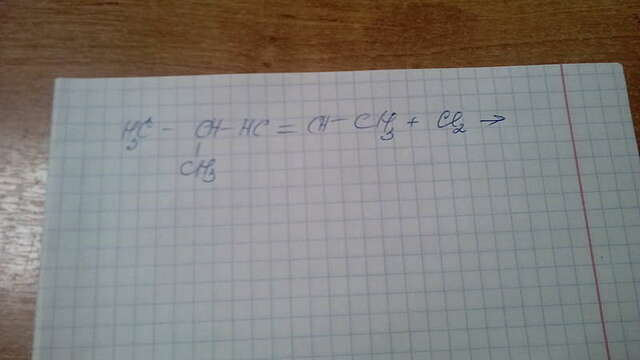 H₃C - CH - HC = CH - CH₃ + Cl₂ →
CH₃